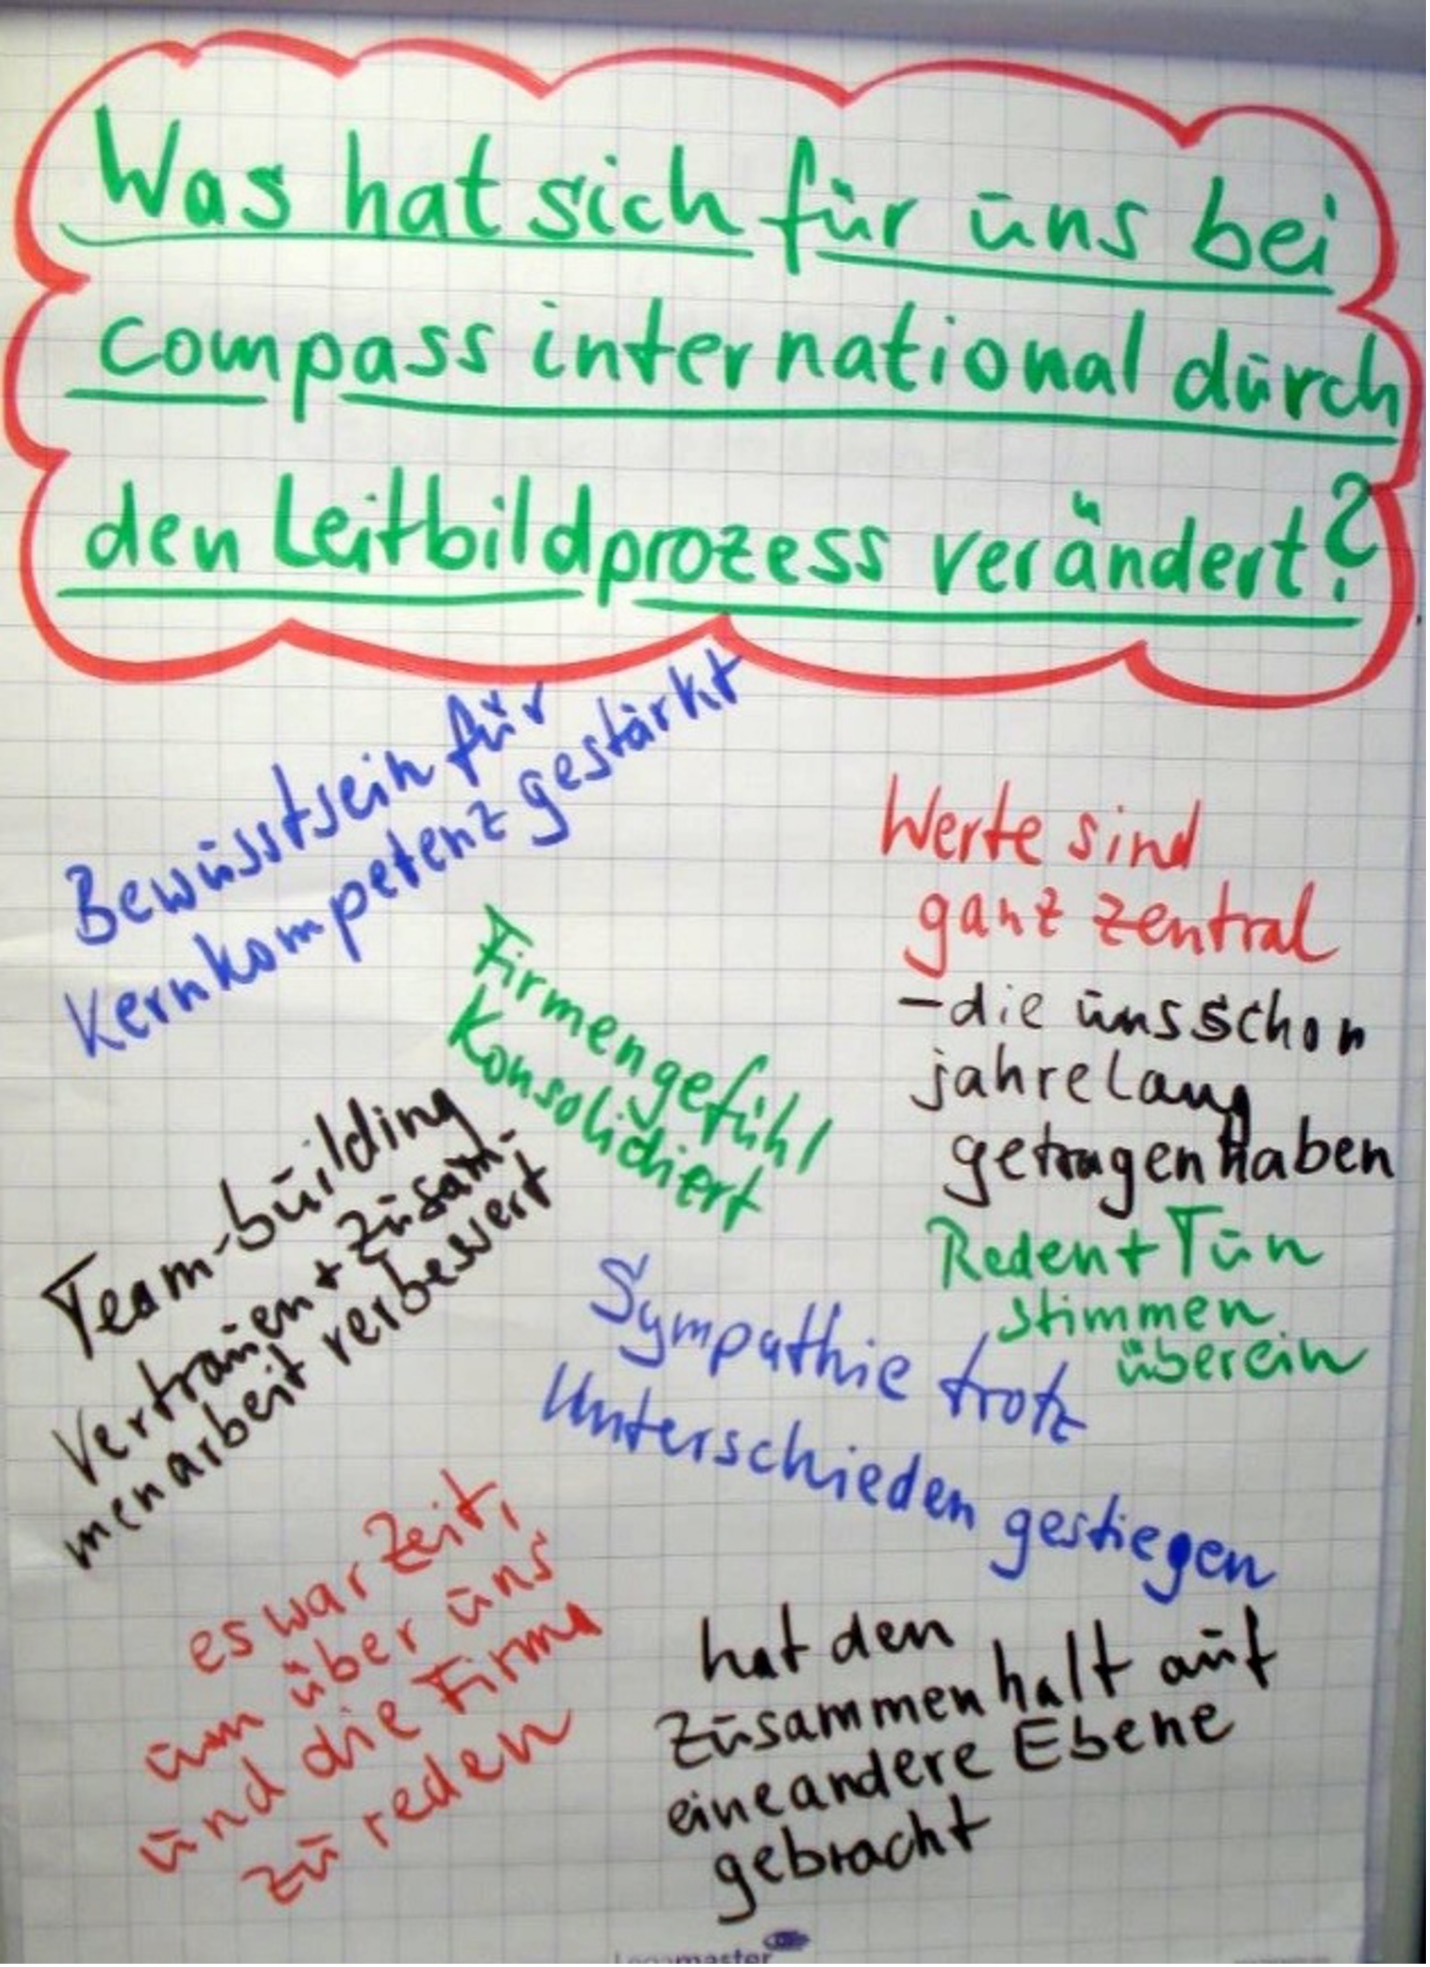 Was hat sich für uns bei
compass international durch
den Leitbildprozess verändert?
Bewusstsein für
Kernkompetenz gestärkt
Werte sind
ganz zentral
- die uns schon
jahrelang
getragen haben
Firmengefühl
Konsolidiert
Team-building
Vertrauen + Zusam-
menarbeit verbessert
Reden + Tun
stimmen
überein
Sympathie trotz
Unterschieden gestiegen
es war Zeit,
um über uns
und die Firma
zu reden
hat den
Zusammenhalt auf
eine andere Ebene
gebracht
Legamaster